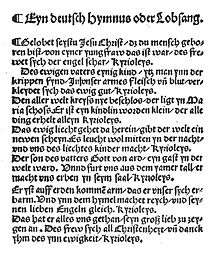 ¶ Eyn deutsch Hymnus oder Lobsang.
¶ Gelobet seystu Jesu Christ, das du mensch gebo⸗
ren bist, von eyner jungfraw das ist war, des frew⸗
wet sych der engel schar, Kyrioleys.
Des ewigen vaters eynig kind, ytz men ynn der
krippen fynd, Inn unser armes fleisch und blut ver⸗
kleydet sych das ewig gut, Kyrioleys.
Den aller welt kreyß nye beschlos, der ligt yn Ma
ria schoß, Er ist eyn kindlin worden kleyn, der alle
ding erhelt alleyn, Kyrioleys.
Das ewig liecht gehet da hereyn, gibt der welt ein
newen scheyn, Es leucht wol mitten yn der nacht,
und uns des liechtes kinder macht, Kyrioleys.
Der son des vatters Gott von ard, eyn gast yn der
welt ward, Unnd furt uns aus dem yamer tal, er
macht uns erben yn seym saal, Kyrioleys.
Er ist auff erden kommen arm, das er unser sych er⸗
barm, Unnd ynn dem hymel machet reych, und sey⸗
nen lieben Engeln gleich, Kyrioleys.
Das hat er alles uns gethan, seyn groß lieb zu zey⸗
gen an, Des frew sych all Christenheyt, und danck
yhm des ynn ewigkeit, Kyrioleys.